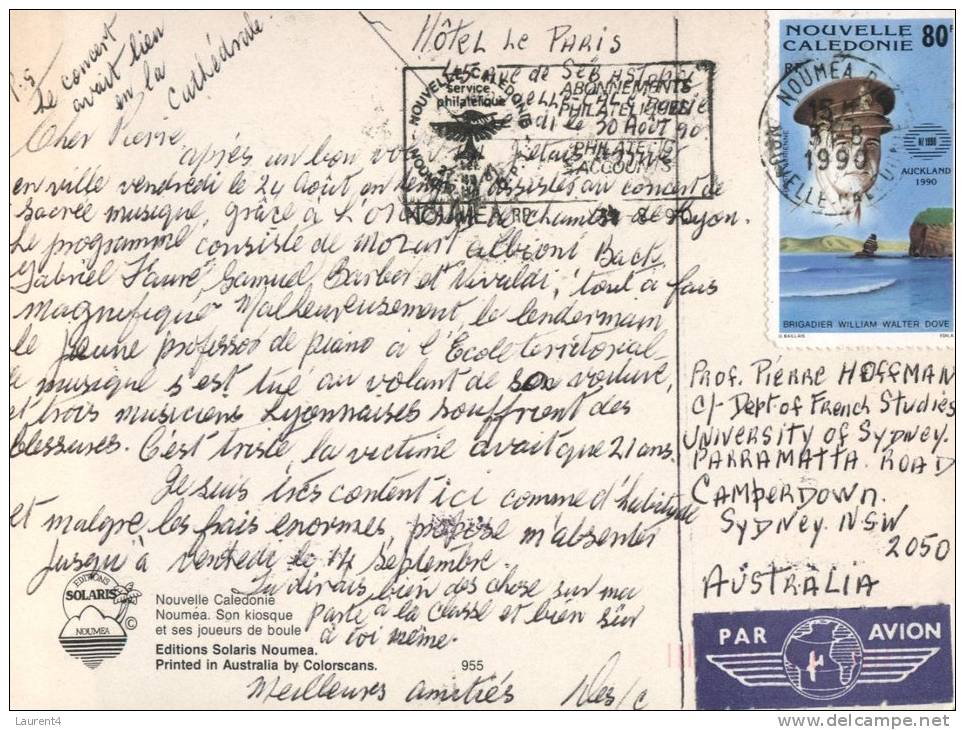 P.S
Le concert
avait lieu
en la
Cathédrale.
Hôtel Le PARIS
30 Août 90
Cher Pierre
après un bon
en ville vendredi le 24 Août, on assister au concert de
sacrée musique, grâce à de chambre de Lyon.
Le programme consiste de Mozart albioni Back,
Gabriel Fauré, Samuel Barber et Vivaldi, tout à fais
magnifique Malheureusement le lendermain
le jeune professor de piano à l'École
de musique s'est tué au volant de son voiture,
et trois musiciens Lyonnaises souffrient des
blessures. C'est triste, la victime avait que 21 ans.
Je suis très content ici comme d'habitude
et malgré les frais enormes, propose m'absenter
jusqu'à vendredi le 14 Septembre.
Tu dirais bien des chose sur ma
parte à la classe et bien sûr
à toi même.
Meilleures amitiés
NOUVELLE CALEDONIE
service
philatélique
ABONNEMENTS
PHILATELIQUES
PHILATELIC
ACCOUNTS
NOUMEA RP
31 8 90
NOUVELLE
CALEDONIE
80F
RF
NOUMEA
15 H
31-8
1990
NZ 1990
AUCKLAND
1990
BRIGADIER WILLIAM WALTER DOVE
PROF. PIERRE HOFFMAN
C/- Dept of French Studies
UNIVERSITY of SYDNEY.
PARRAMATTA ROAD
CAMPERDOWN.
SYDNEY NSW
2050
AUSTRALIA
PAR AVION
EDITIONS
SOLARIS
NOUMEA
©
Nouvelle Calédonie
Nouméa. Son kiosque
et ses joueurs de boule
Editions Solaris Noumea.
Printed in Australia by Colorscans.
955
Laurent4
www.delcampe.net